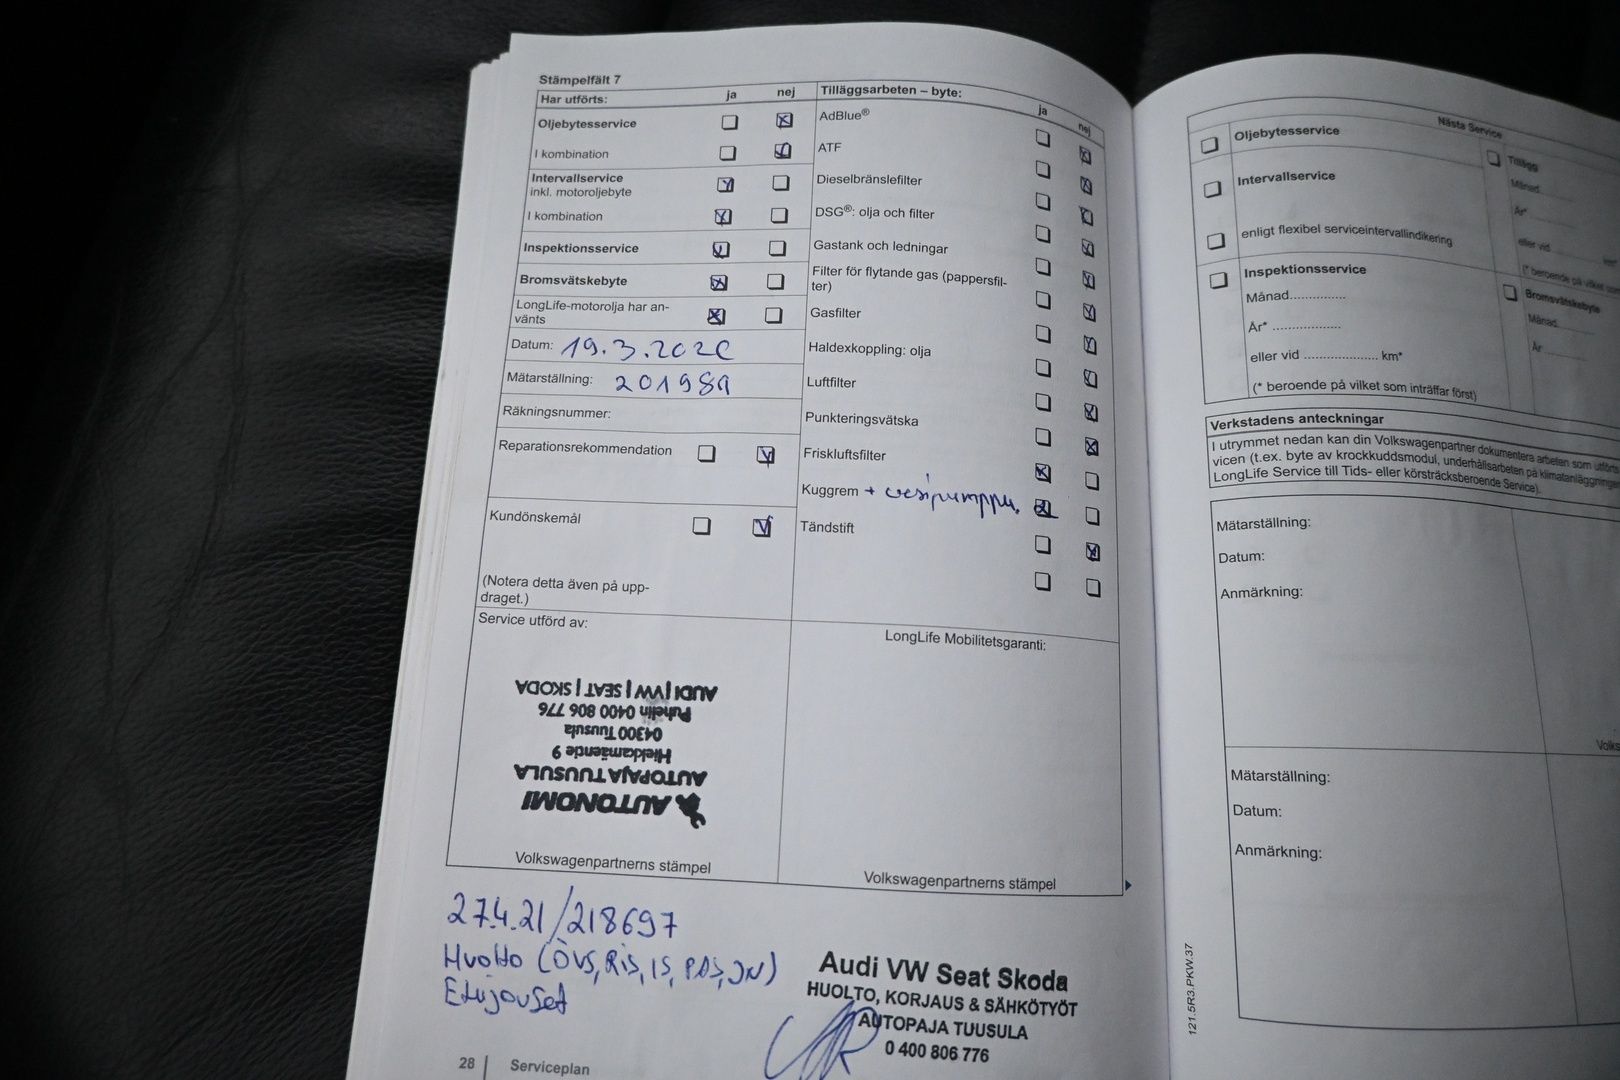 Stämpelfält 7
Har utförts: ja nej
Oljebytesservice
I kombination
Intervallservice
inkl. motoroljebyte
I kombination
Inspektionsservice
Bromsvätskebyte
LongLife-motorolja har an-
vänts
Datum: 19.3.2020
Mätarställning: 201989
Räkningsnummer:
Reparationsrekommendation
Kundönskemål
(Notera detta även på upp-
draget.)
Service utförd av:
AUTONOMI
AUTOPAJA TUUSULA
Hiekkamäende 9
04300 Tuusula
Puhelin 0400 806 776
AUDI | VW | SEAT | SKODA
Volkswagenpartnerns stämpel
Tilläggsarbeten – byte: ja nej
AdBlue®
ATF
Dieselbränslefilter
DSG®: olja och filter
Gastank och ledningar
Filter för flytande gas (pappersfil-
ter)
Gasfilter
Haldexkoppling: olja
Luftfilter
Punkteringsvätska
Friskluftsfilter
Kuggrem + vesipumppu.
Tändstift
LongLife Mobilitetsgaranti:
Volkswagenpartnerns stämpel
27.4.21/218697
Huolto (ÖVS, RIS, IS, PDS, JN)
Etujouset
Audi VW Seat Skoda
HUOLTO, KORJAUS & SÄHKÖTYÖT
AUTOPAJA TUUSULA
0 400 806 776
28 | Serviceplan
Nästa Service
Oljebytesservice
Intervallservice
enligt flexibel serviceintervallindikering
Inspektionsservice
Månad...............
År* ..................
eller vid .................... km*
(* beroende på vilket som inträffar först)
Tillägg
Månad
År*
eller vid km*
(* beroende på vilket som
Bromsvätskebyte
Månad
År
Verkstadens anteckningar
I utrymmet nedan kan din Volkswagenpartner dokumentera arbeten som utförts
vicen (t.ex. byte av krockkuddsmodul, underhållsarbeten på klimatanläggningen
LongLife Service till Tids- eller körsträcksberoende Service).
Mätarställning:
Datum:
Anmärkning:
Volks
Mätarställning:
Datum:
Anmärkning:
121.5R3.PKW.37